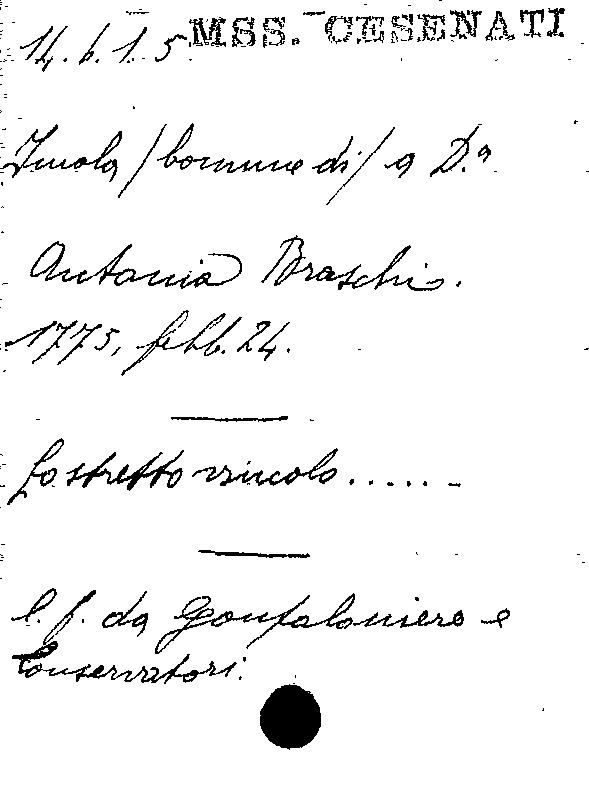 14.6.1.5 MSS. CESENATI
Imola /Comune di/ a D.ª
Antonia Braschi.
1775, febb. 24.
Lo stretto vincolo......
l. f. da Gonfaloniero e
Conservatori.